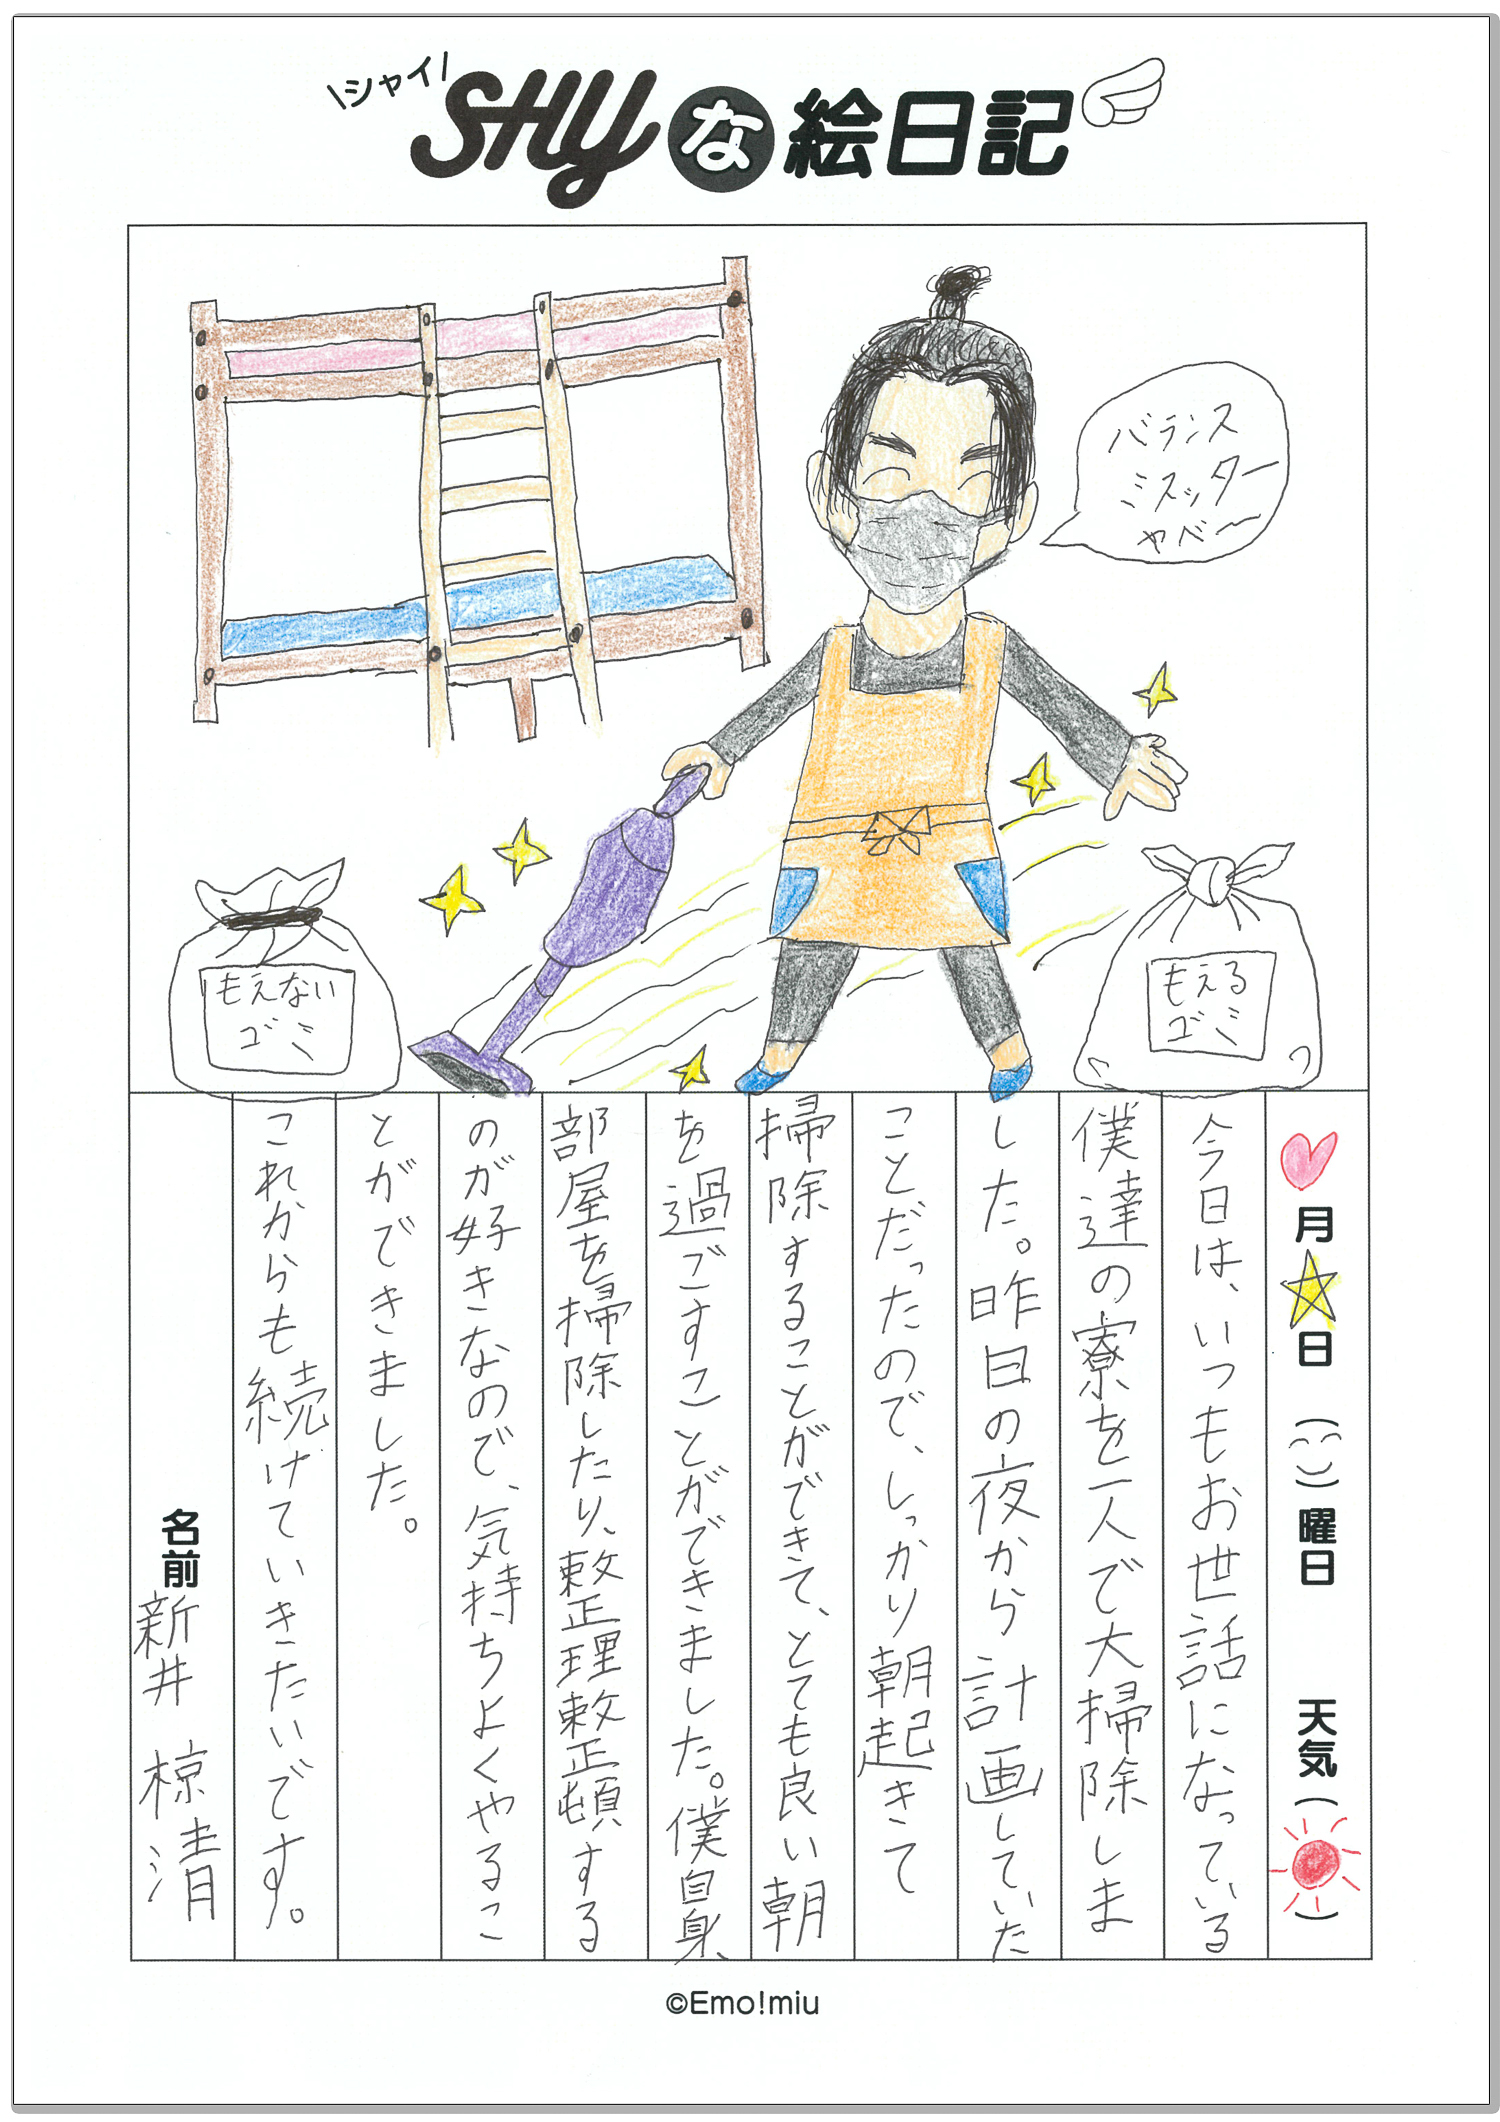 \シャイ/
SHYな絵日記
バランス
ミスッター
ヤベー
もえない
ゴミ
もえる
ゴミ
月 日 ( ) 曜日 天気 ( )
今日は、いつもお世話になっている
僕達の寮を一人で大掃除しま
した。昨日の夜から計画していた
ことだったので、しっかり朝起きて
掃除することができて、とても良い朝
を過ごすことができました。僕自身、
部屋を掃除したり、整理整頓する
のが好きなので、気持ちよくやるこ
とができました。
これからも続けていきたいです。
名前 新井 椋清
©Emo!miu